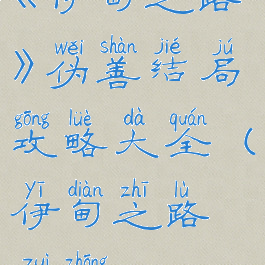 《伊甸之路
wěi shàn jié jú
》伪善结局
gōng lüè dà quán
攻略大全（
yī diàn zhī lù
伊甸之路
zuì zhōng